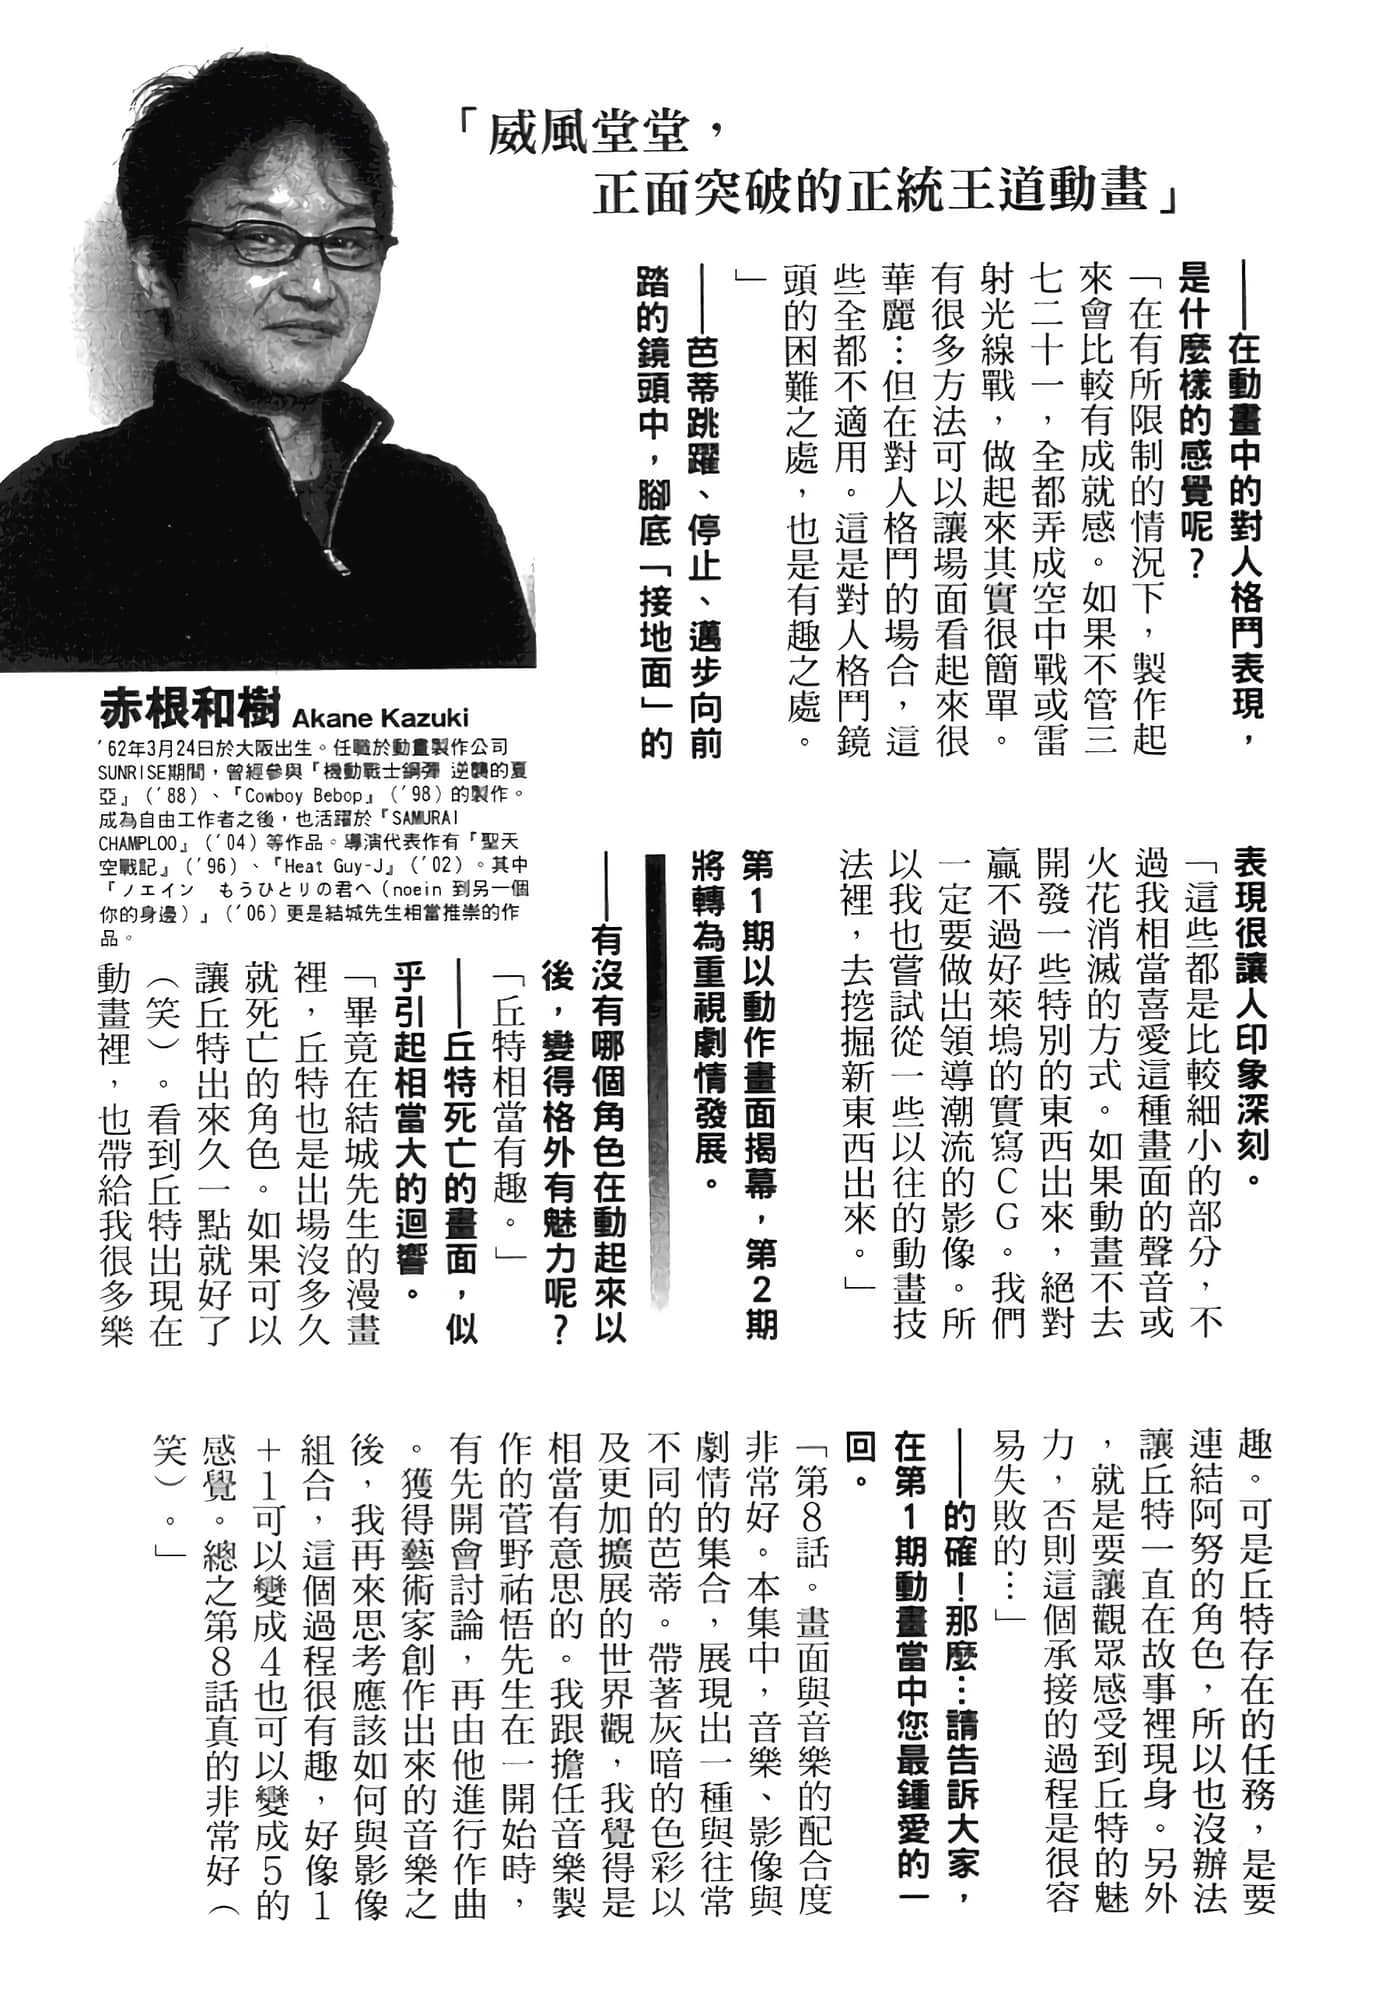 「威風堂堂，
正面突破的正統王道動畫」
——在動畫中的對人格鬥表現，
是什麼樣的感覺呢？
「在有所限制的情況下，製作起
來會比較有成就感。如果不管三
七二十一，全都弄成空中戰或雷
射光線戰，做起來其實很簡單。
有很多方法可以讓場面看起來很
華麗…但在對人格鬥的場合，這
些全都不適用。這是對人格鬥鏡
頭的困難之處，也是有趣之處。
」
——芭蒂跳躍、停止、邁步向前
踏的鏡頭中，腳底「接地面」的
赤根和樹 Akane Kazuki
'62年3月24日於大阪出生。任職於動畫製作公司
SUNRISE期間，曾經參與『機動戰士鋼彈 逆襲的夏
亞』（'88）、『Cowboy Bebop』（'98）的製作。
成為自由工作者之後，也活躍於『SAMURAI
CHAMPLOO』（'04）等作品。導演代表作有『聖天
空戰記』（'96）、『Heat Guy-J』（'02）。其中
『ノエイン もうひとりの君へ（noein 到另一個
你的身邊）』（'06）更是結城先生相當推崇的作
品。
表現很讓人印象深刻。
「這些都是比較細小的部分，不
過我相當喜愛這種畫面的聲音或
火花消滅的方式。如果動畫不去
開發一些特別的東西出來，絕對
贏不過好萊塢的實寫CG。我們
一定要做出領導潮流的影像。所
以我也嘗試從一些以往的動畫技
法裡，去挖掘新東西出來。」
第1期以動作畫面揭幕，第2期
將轉為重視劇情發展。
——有沒有哪個角色在動起來以
後，變得格外有魅力呢？
「丘特相當有趣。」
——丘特死亡的畫面，似
乎引起相當大的迴響。
「畢竟在結城先生的漫畫
裡，丘特也是出場沒多久
就死亡的角色。如果可以
讓丘特出來久一點就好了
（笑）。看到丘特出現在
動畫裡，也帶給我很多樂
趣。可是丘特存在的任務，是要
連結阿努的角色，所以也沒辦法
讓丘特一直在故事裡現身。另外
，就是要讓觀眾感受到丘特的魅
力，否則這個承接的過程是很容
易失敗的…」
——的確！那麼…請告訴大家，
在第1期動畫當中您最鍾愛的一
回。
「第8話。畫面與音樂的配合度
非常好。本集中，音樂、影像與
劇情的集合，展現出一種與往常
不同的芭蒂。帶著灰暗的色彩以
及更加擴展的世界觀，我覺得是
相當有意思的。我跟擔任音樂製
作的菅野祐悟先生在一開始時，
有先開會討論，再由他進行作曲
。獲得藝術家創作出來的音樂之
後，我再來思考應該如何與影像
組合，這個過程很有趣，好像1
＋1可以變成4也可以變成5的
感覺。總之第8話真的非常好（
笑）。」